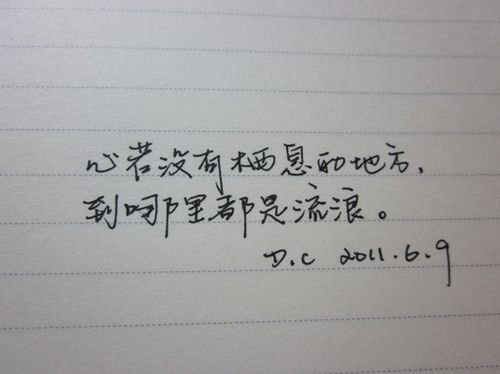 心若没有栖息的地方，
到哪里都是流浪。
D.C 2011.6.9